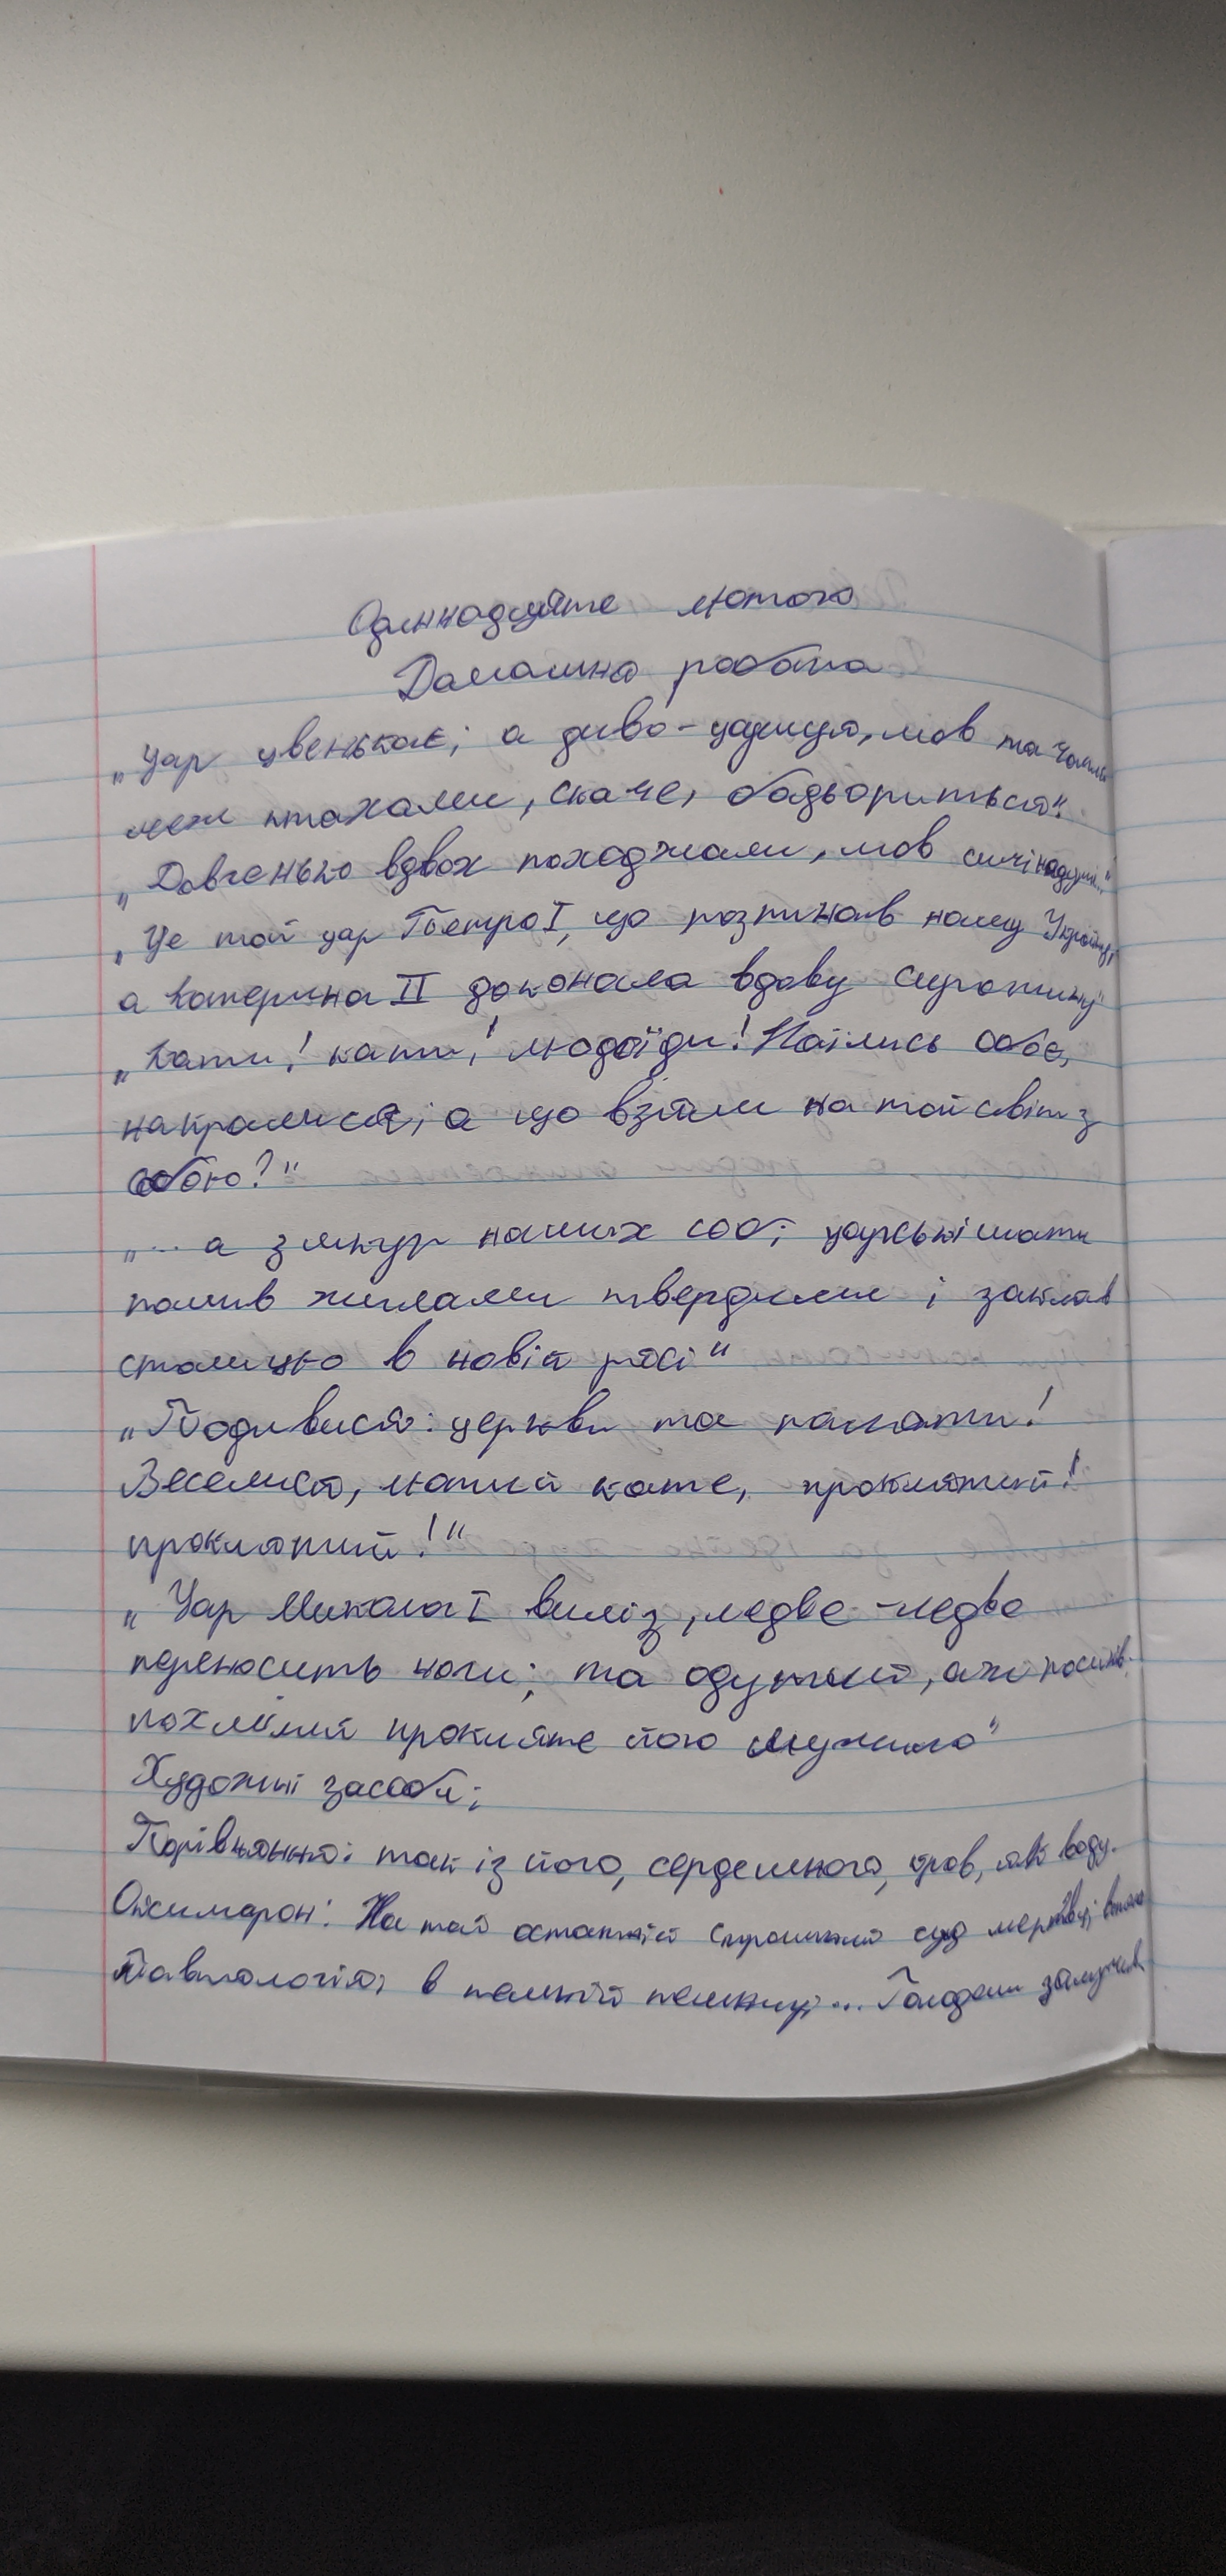 Одиннадцяте лютого
Домашня робота
„Цар цвенькає; а диво-цариця, мов та чапля
меж птахами, скаче, бадьориться“.
„Довгенько вдвох походжали, мов сичі надуті..“
„Це той цар Петро I, що розпинав нашу Україну,
а Катерина II доконала вдову сиротину“
„Кати! кати! людоїди! Наїлись обоє,
накралися; а що взяли на той світ з
собою?“
„... а з шкур наших собі царські шати
пошив жилами твердими і заклав
столицю в новій рясі“
„Подивися: церкви та палати!
Веселися, лютий кате, проклятий!
проклятий!“
„Цар Микола I виліз, ледве-ледве
переносить ноги; та одутий, аж посинів.
похмілля прокляте його мучило“
Художні засоби:
Порівняння: так із його, сердешного, кров, як воду.
Оксиморон: На той останній страшний суд мертвці встали
Тавтологія: в темній темниці... Голодом замучив